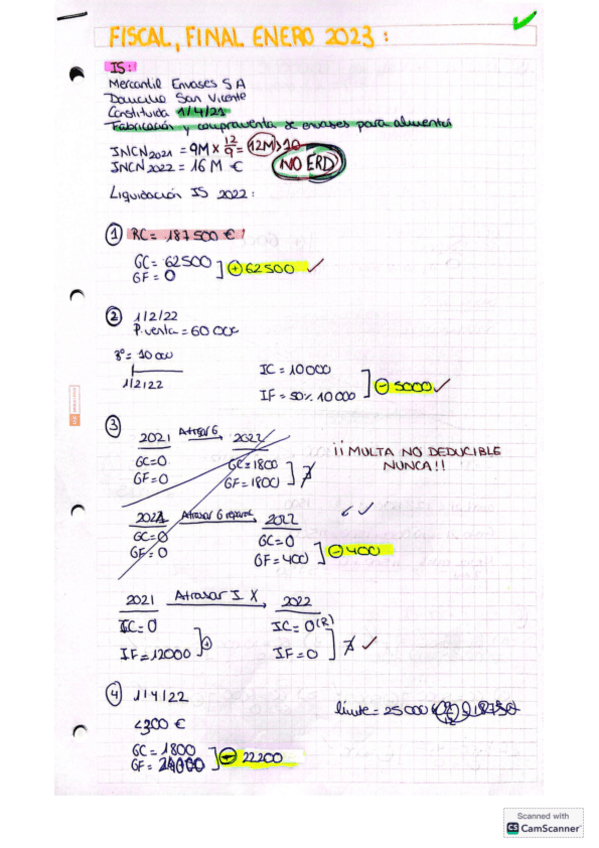 FISCAL, FINAL ENERO 2023:
IS:
Mercantil Envases SA
Domicilio San Vicente
Constituida 1/4/21
Fabricación y compraventa de envases para alimentos
INCN2021 = 9M × 12/9 = 12M > 10
INCN2022 = 16 M €
NO ERD
Liquidación IS 2022:
① RC = 187500 €
GC = 62500
GF = 0
+ 62500
② 1/2/22
P. venta = 60 000
Bº = 10 000
1/2/22
IC = 10000
IF = 50% 10000
- 5000
③
2021 Atrasar G 2022
GC=0 GC=1800
GF=0 GF=1800
¡¡ MULTA NO DEDUCIBLE
NUNCA!!
2021 Atrasar G 2022
GC=0 GC=0
GF=0 GF=400
- 400
2021 Atrasar I X 2022
IC=0 IC=0(R)
IF=12000 + IF=0
④ 1/4/22
<300 €
límite = 25000
GC = 1800
GF = 24000
- 22200
Scanned with
CS CamScanner